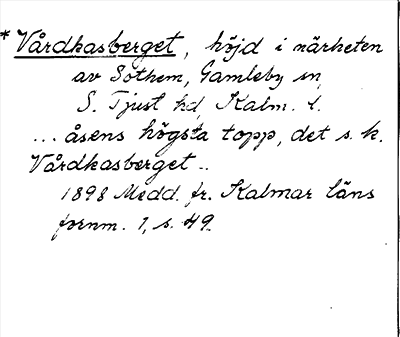 * Vårdkasberget, höjd i närheten
av Sothem, Gamleby sn,
S. Tjust hd, Kalm. l.
... åsens högsta topp, det s. k.
Vårdkasberget ..
1898 Medd. fr. Kalmar läns
fornm. 1, s. 49.